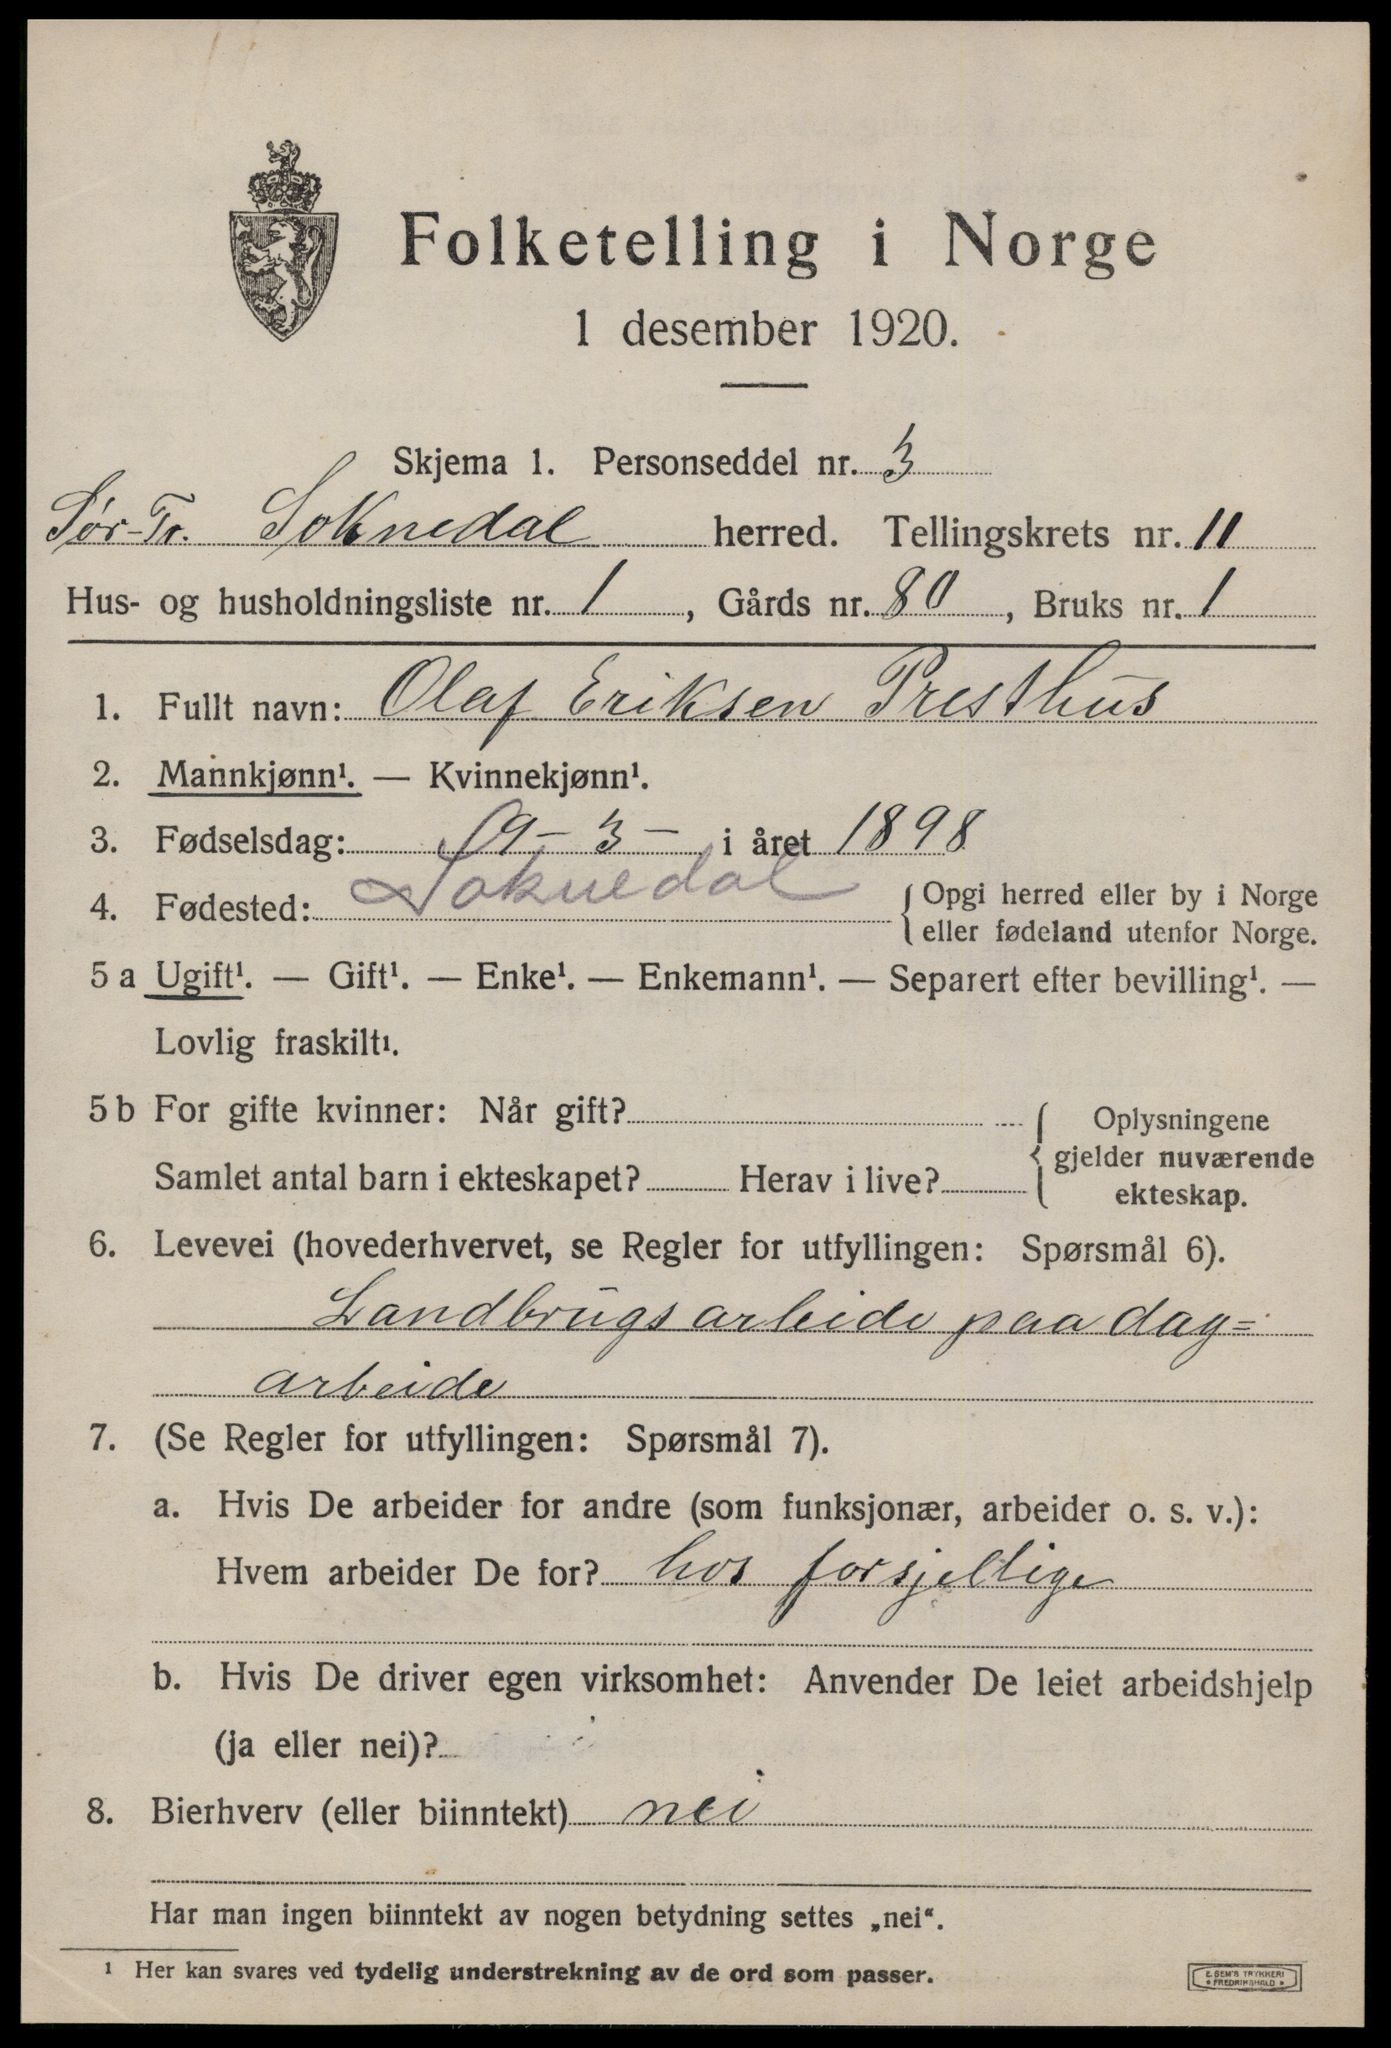 Folketelling i Norge
1 desember 1920.
Skjema 1. Personseddel nr. 3
Sør-Tr. Soknedal herred. Tellingskrets nr. 11
Hus- og husholdningsliste nr. 1, Gårds nr. 80, Bruks nr. 1
1. Fullt navn: Olaf Eriksen Presthus
2. Mannkjønn¹. — Kvinnekjønn¹.
3. Fødselsdag: 19 - 3 - i året 1898
4. Fødested: Soknedal { Opgi herred eller by i Norge
eller fødeland utenfor Norge.
5 a Ugift¹. — Gift¹. — Enke¹. — Enkemann¹. — Separert efter bevilling¹. —
Lovlig fraskilt¹.
5 b For gifte kvinner: Når gift? { Oplysningene
gjelder nuværende
Samlet antal barn i ekteskapet? Herav i live?
ekteskap.
6. Levevei (hovederhvervet, se Regler for utfyllingen: Spørsmål 6).
Landbrugsarbeide paa dag=
arbeide
7. (Se Regler for utfyllingen: Spørsmål 7).
a. Hvis De arbeider for andre (som funksjonær, arbeider o. s. v.):
Hvem arbeider De for? hos forsjellige
b. Hvis De driver egen virksomhet: Anvender De leiet arbeidshjelp
(ja eller nei)?
8. Bierhverv (eller biinntekt) nei
Har man ingen biinntekt av nogen betydning settes „nei“.
¹ Her kan svares ved tydelig understrekning av de ord som passer.
E. SEM'S TRYKKERI
FREDRIKSHALD